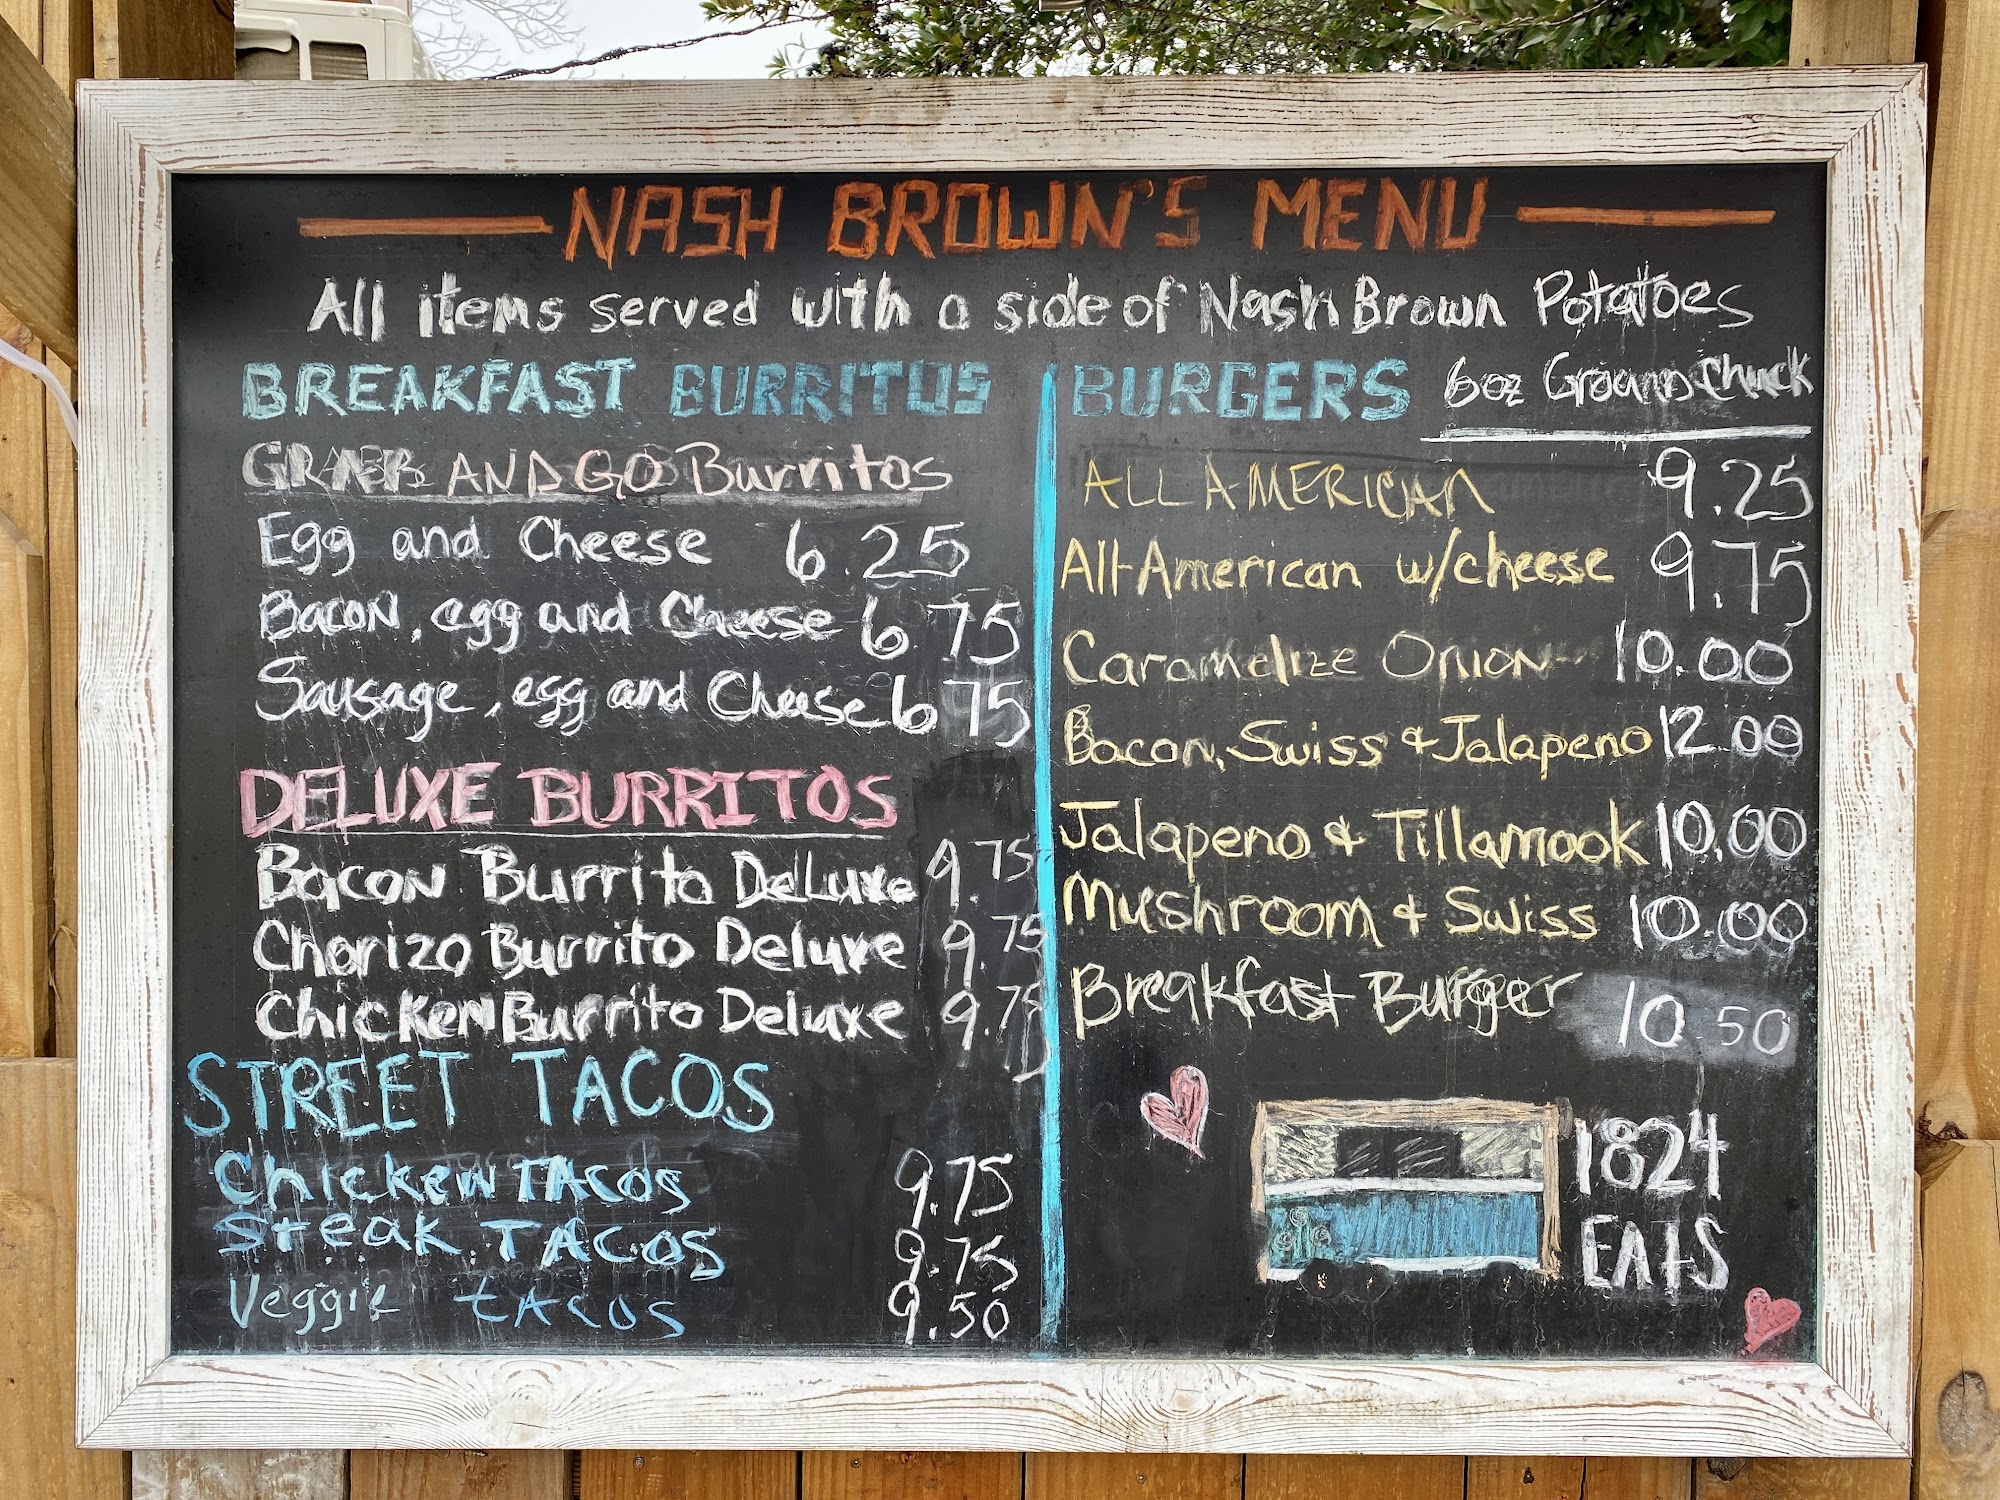 NASH BROWN'S MENU
All items served with a side of Nash Brown Potatoes
BREAKFAST BURRITOS
GRAB AND GO Burritos
Egg and Cheese 6.25
Bacon, egg and Cheese 6.75
Sausage, egg and Cheese 6.75
DELUXE BURRITOS
Bacon Burrito Deluxe 9.75
Chorizo Burrito Deluxe 9.75
Chicken Burrito Deluxe 9.75
STREET TACOS
Chicken TACOS 9.75
Steak TACOS 9.75
Veggie tacos 9.50
BURGERS 6oz Ground Chuck
ALL AMERICAN 9.25
All-American w/cheese 9.75
Caramelize Onion 10.00
Bacon, Swiss & Jalapeno 12.00
Jalapeno & Tillamook 10.00
Mushroom & Swiss 10.00
Breakfast Burger 10.50
1824
EATS